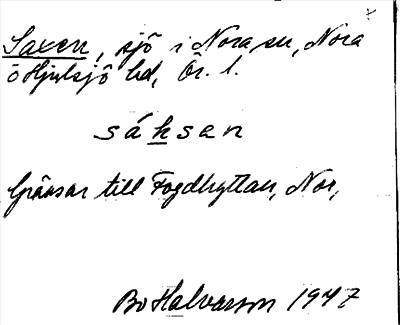 Saxen, sjö i Nora sn, Nora
o Hjulsjö hd, Ör. l.
sáksan
Gränsar till Fogdhyttan, Nor,
Bo Halvarson 1947